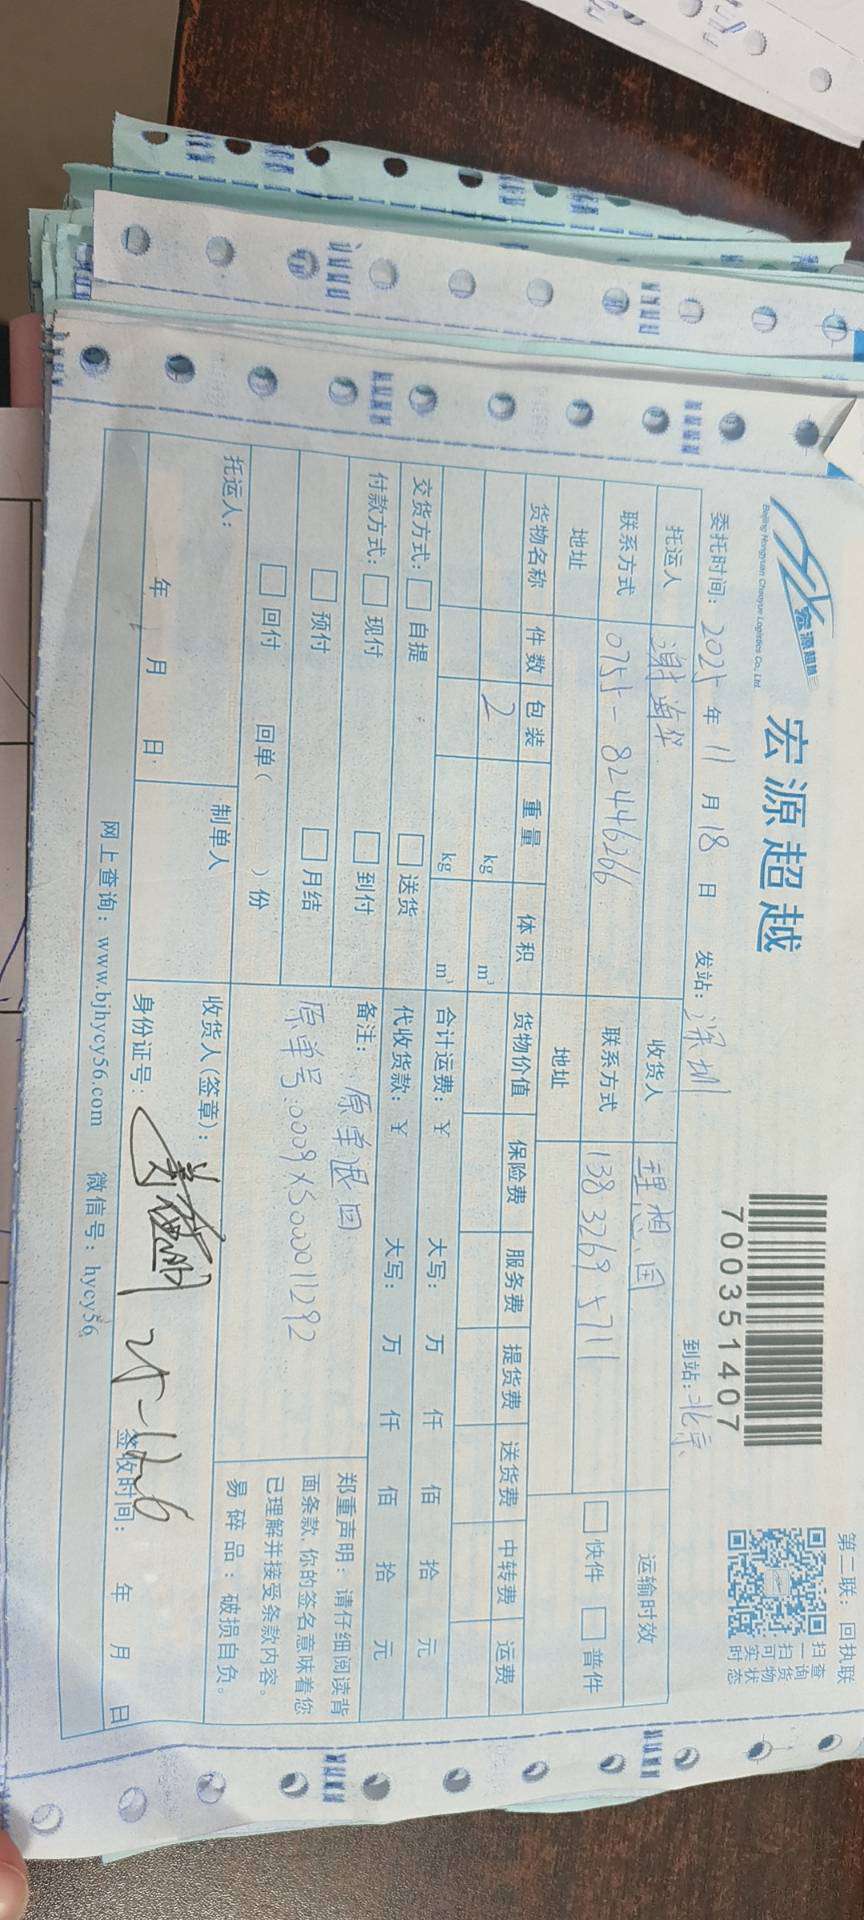 第二联：回执联
宏源超越
Beijing Hongyuan Chaoyue Logistics Co., Ltd.
宏源超越
700351407
扫查
一询
扫货
可物
实状
时态
委托时间：2025年11月18日 发站：深圳 到站：北京
托运人 收货人 理想国 运输时效
联系方式 0755-82446266 联系方式 13832695711 快件 普件
地址 地址
货物名称 件数 包装 重量 体积 货物价值 保险费 服务费 提货费 送货费 中转费 运费
2 kg m³
kg m³ 合计运费：¥ 大写： 万 仟 佰 拾 元
交货方式： 自提 送货 代收货款：¥ 大写： 万 仟 佰 拾 元
付款方式： 现付 到付 备注： 原单退回
预付 月结 原单号：0009XS000011292
回付 回单（ ）份
郑重声明：请仔细阅读背
面条款，你的签名意味着您
已理解并接受条款内容。
易碎品：破损自负。
托运人： 制单人 收货人(签章)：
年 月 日 身份证号： 签收时间： 年 月 日
网上查询：www.bjhycy56.com 微信号：hycy56